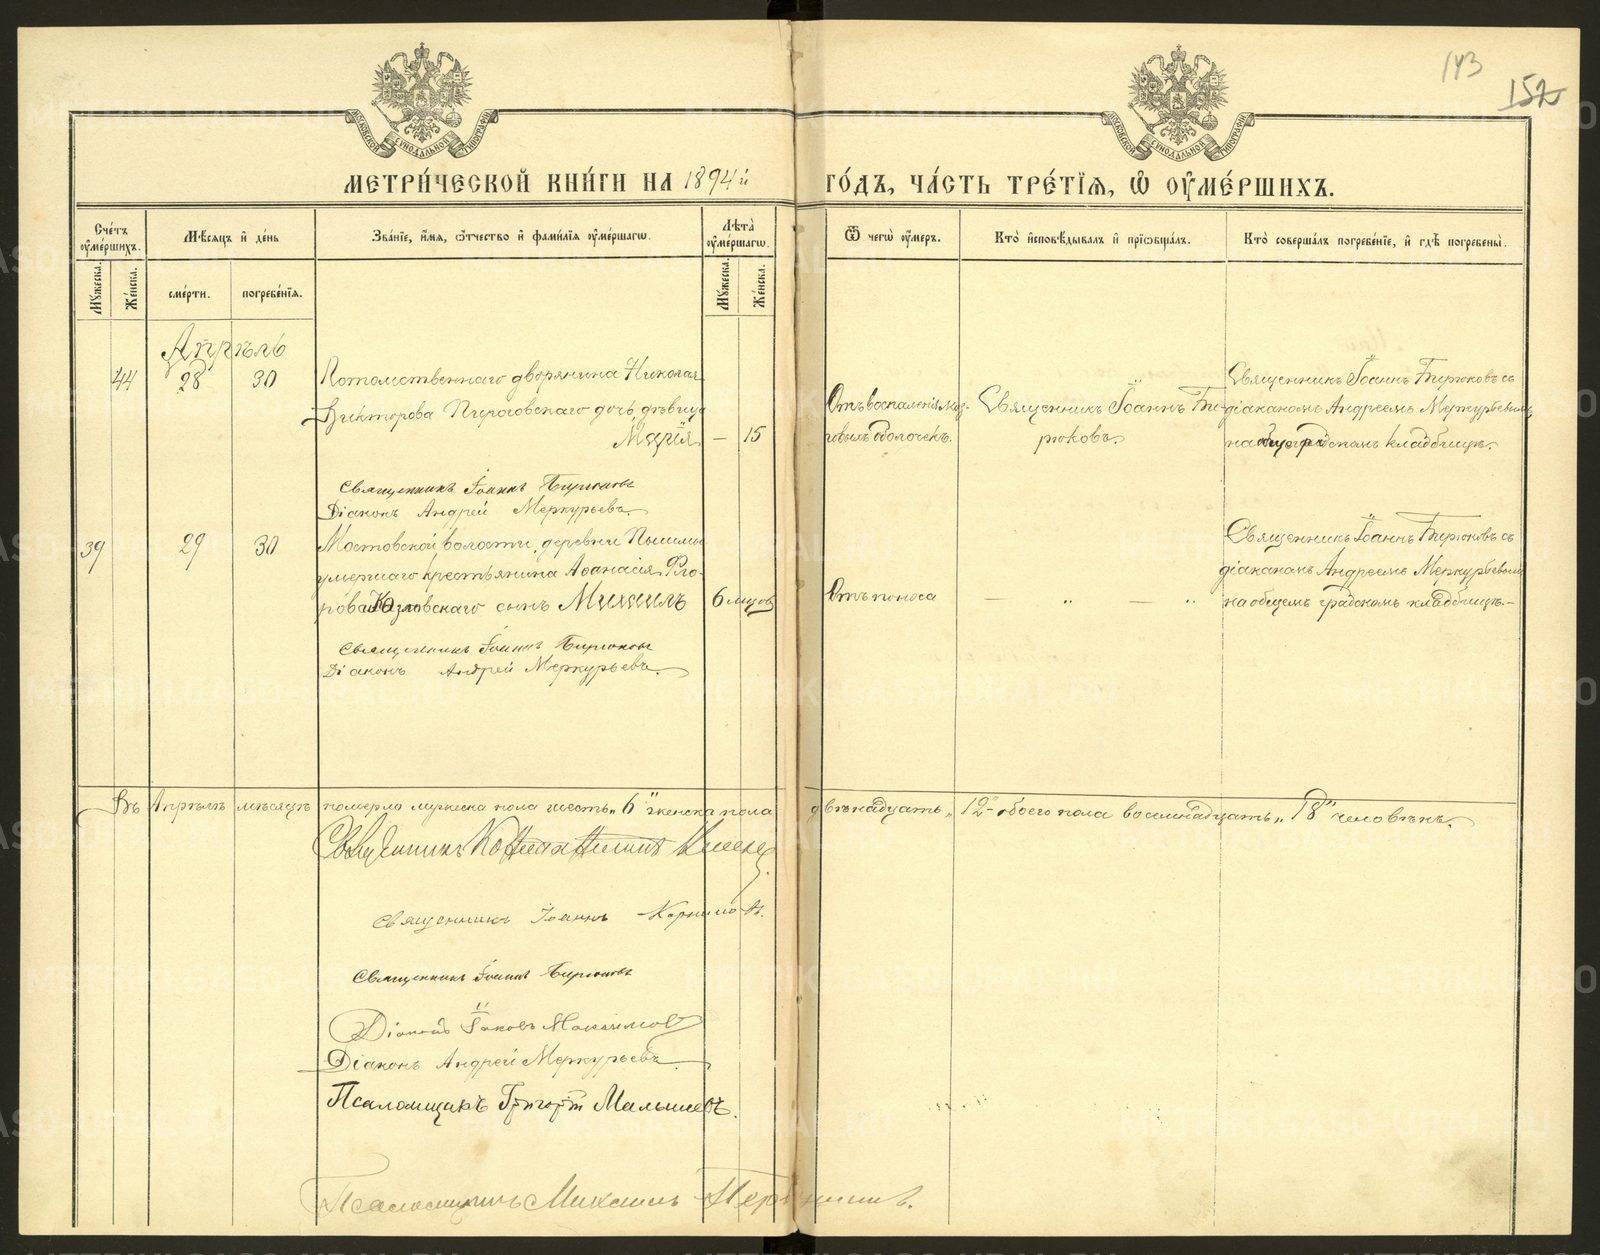 143
152
МОСКОВСКОЙ СѴНОДАЛЬНОЙ ТИПОГРАФІИ
МОСКОВСКОЙ СѴНОДАЛЬНОЙ ТИПОГРАФІИ
МЕТРИ́ЧЕСКОЙ КНИ́ГИ НА 1894й ГО́ДЪ, ЧА́СТЬ ТРЕ́ТІѦ, Ѽ ОУ҆МЕ́РШИХЪ.
Сче́тъ оу҆ме́ршихъ.
Мѣ́сяцъ и҆ де́нь
Зва́нїе, и҆́мѧ, ѻ҆́тчество и҆ фами́лїѧ оу҆ме́ршагѡ.
Лѣта̀ оу҆ме́ршагѡ.
Ѿ чегѡ̀ оу҆́меръ.
Кто̀ и҆сповѣ́дывалъ и҆ прїѡбща́лъ.
Кто̀ соверша́лъ погребе́нїе, и҆ гдѣ̀ погребены̀.
Мꙋ́жеска.
Же́нска.
сме́рти.
погребе́нїѧ.
Мꙋ́жеска.
Же́нска.
Апрѣль
44 28 30
Потомственнаго дворянина Николая
Викторова Пироговскаго дочь, дѣвица
Марія — 15
Отъ воспаленія моз-
говыхъ оболочекъ.
Священникъ Іоаннъ Би-
рюковъ.
Священникъ Іоаннъ Бирюковъ съ
діакономъ Андреемъ Меркурьевымъ
на общеградскомъ кладбищѣ.
Священникъ Іоаннъ Бирюковъ
Діаконъ Андрей Меркурьевъ
39 29 30
Мостовской волости, деревни Пышмы
умершаго крестьянина Аѳанасія Фло-
рова Козловскаго сынъ Михаилъ 6 мцовъ
Отъ поноса
— „ — „
Священникъ Іоаннъ Бирюковъ съ
діакономъ Андреемъ Меркурьевымъ
на общемъ градскомъ кладбищѣ.—
Священникъ Іоаннъ Бирюковъ
Діаконъ Андрей Меркурьевъ.
Въ Апрѣлѣ мѣсяцѣ померло мужеска пола шесть „6" женска пола двѣнадцать „12" обоего пола восемнадцать „18" человѣкъ.
Священникъ Константинъ
Священникъ Іоаннъ Корнилов.
Священникъ Іоаннъ Бирюковъ
Діаконъ Іаковъ Максимовъ
Діаконъ Андрей Меркурьевъ
Псаломщикъ Григорій Малышевъ.
Псаломщикъ Михаилъ